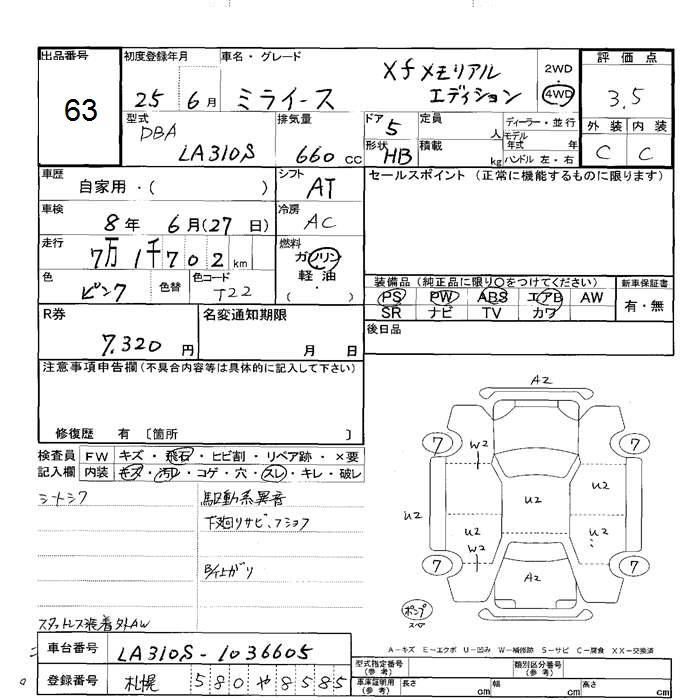 出品番号
63
初度登録年月
25 6月
車名・グレード
ミライース
Xf メモリアル
エディション
2WD
・
4WD
評価点
3.5
型式
DBA
LA310S
排気量
660 CC
ドア 5
形状 HB
定員
人
積載
kg
ディーラー・並行
モデル
年式 年
ハンドル 左・右
外装 内装
C C
車歴
自家用・( )
シフト
AT
セールスポイント (正常に機能するものに限ります)
車検
8年 6月(27日)
冷房
AC
走行
7万1千702km
燃料
ガソリン
軽・油
( )
色
ピンク
色替
色コード
T22
装備品(純正品に限り○をつけてください)
PS PW ABS エアB AW
SR ナビ TV カワ
新車保証書
有・無
R券
7,320円
名変通知期限
月 日
後日品
注意事項申告欄(不具合内容等は具体的に記入して下さい)
修復歴 有 〔箇所 〕
検査員
記入欄
FW キズ・飛石・ヒビ割・リペア跡・×要
内装 キズ・汚れ・コゲ・穴・スレ・キレ・破レ
シートシワ
駆動系異音
下廻りサビ、
B/上がり
スタットレス装着 外AW
A2
7 7
W2
U2
U2
U2
U2
U2
W2
7 7
A2
ポンプ
スペア
A-キズ E-エクボ U-凹み W-補修跡 S-サビ C-腐食 XX-交換済
車台番号
LA310S-1036605
登録番号
札幌 580や8585
型式指定番号
(参考)
類別区分番号
(参考)
車庫証明用
(参考)
長さ cm
幅 cm
高さ cm